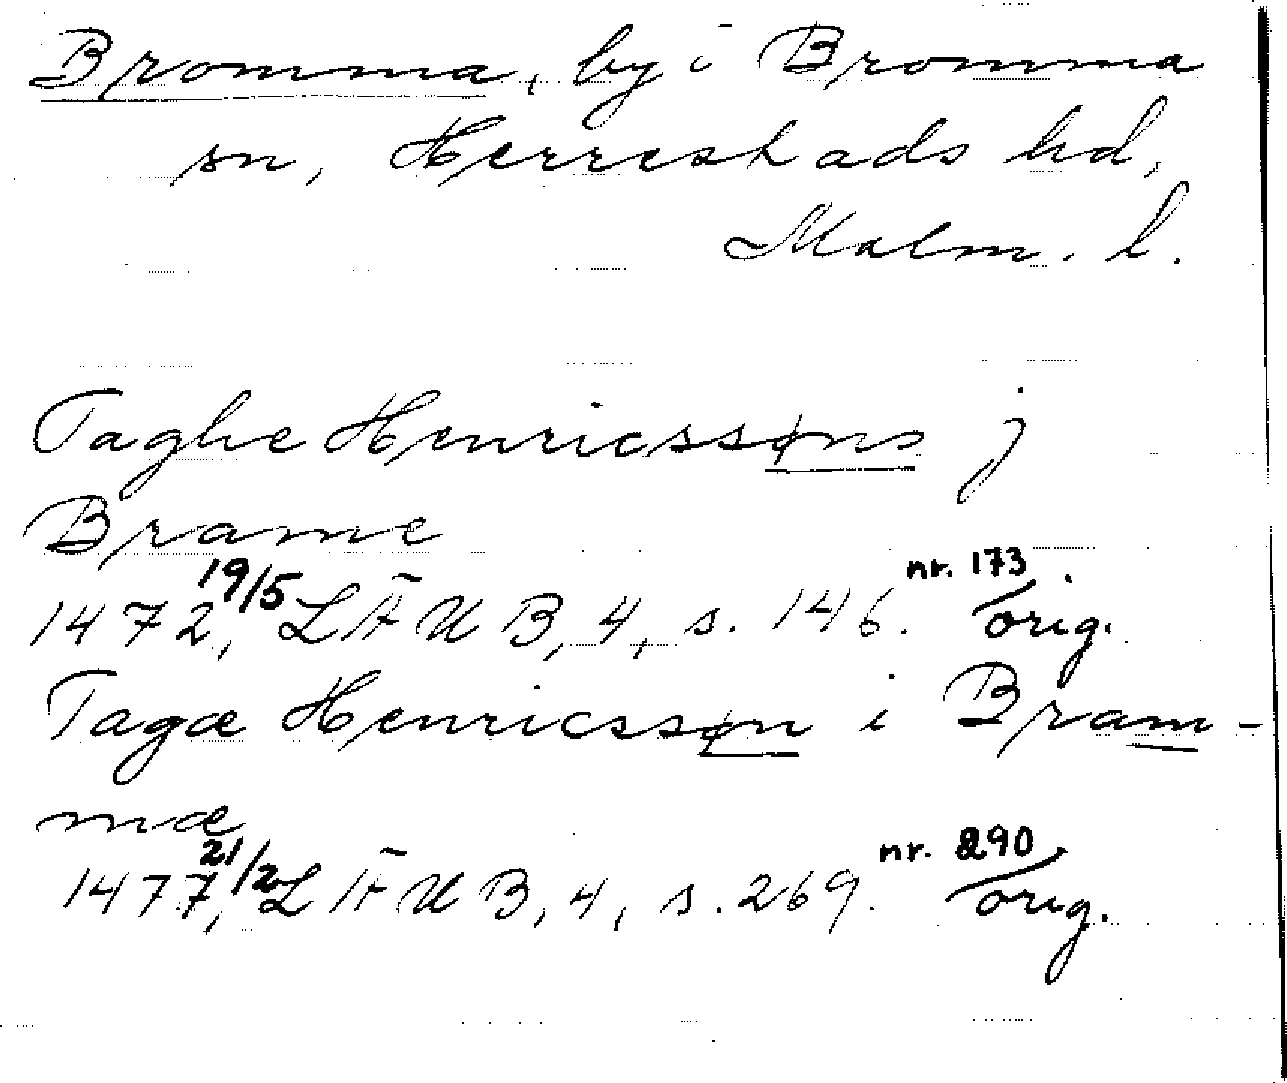 Bromma, by i Bromma
sn, Herrestads hd,
Malm. l.
Taghe Henricssøns j
Brame
1472, 19/5 LÄUB, 4, s. 146. nr. 173 / orig.
Tagæ Henricssøn i Bram-
mæ
1477, 21/2 LÄUB, 4, s. 269. nr. 290 / orig.